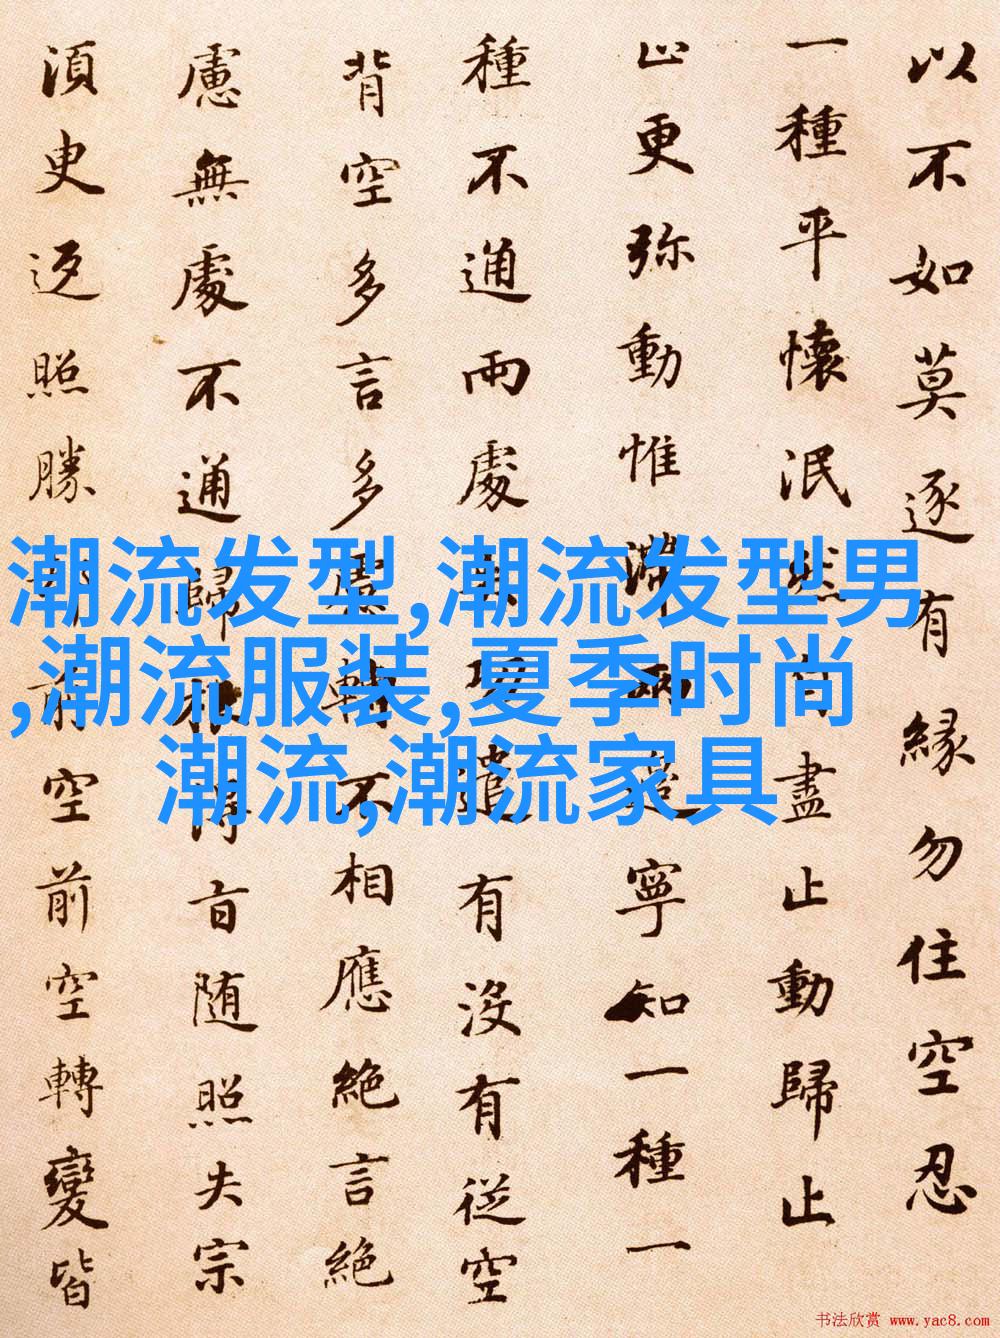 以不如莫逐有縁勿住空忍
一種平懷泯然盡止動歸止
止更弥動惟滯兩邊寧知一種一
種不通兩處功遣有没有従空
背空多言多慮轉不相應絶言絶
慮無處不通歸根得旨随照失宗
須臾返照勝前空前空轉變皆
潮流发型,潮流发型男
,潮流服装,夏季时尚
潮流,潮流家具
书法欣赏 www.yac8.com